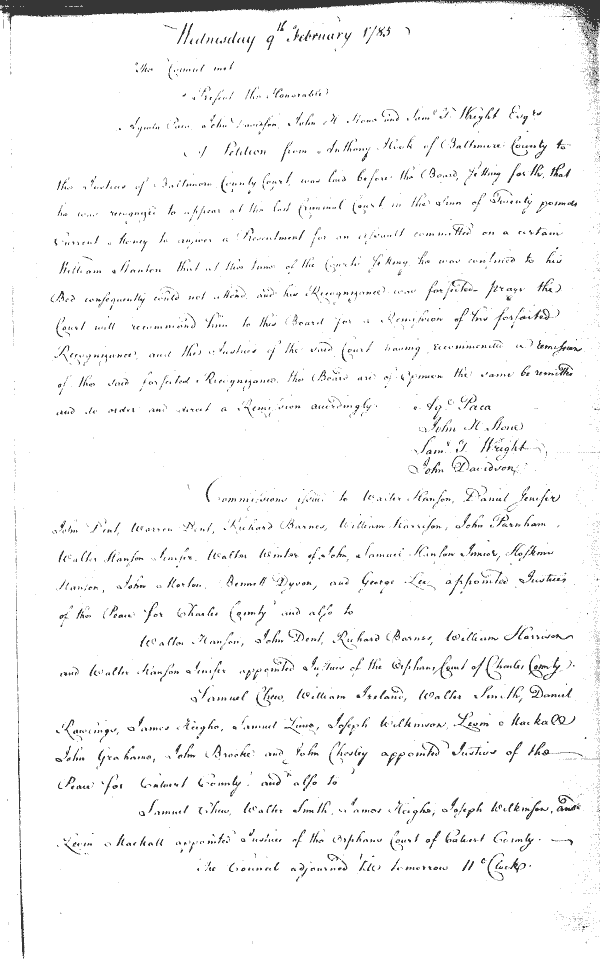 Wednesday 9th February 1785
The Council met
Present the Honorable
Aquila Paca, John Davidson, John H Stone and Saml T. Wright Esqrs
A Petition from Anthony Hook of Baltimore County to
the Justices of Baltimore County Court, was laid before the Board, setting forth, that
he was recognized to appear at the last Criminal Court in the Sum of Twenty pounds
Current Money to answer a Presentment for an assault committed on a certain
William Stanton that at the time of the Courts sitting he was confined to his
Bed consequently could not attend, and his Recognizance was forfeited prays the
Court will recommend him to this Board for a Remission of his forfeited
Recognizance, and the Justices of the said Court having recommended a remission
of the said forfeited Recognizance, the Board are of Opinion the same be remitted
and do order and direct a Remission accordingly.
Aqa Paca
John H Stone
Saml T. Wright
John Davidson
Commissions issue to Walter Hanson, Daniel Jenifer
John Dent, Warren Dent, Richard Barnes, William Harrison, John Parnham,
Walter Hanson Jenifer, Walter Winter of John, Samuel Hanson Junior, Hoskins
Hanson, John Morton, Bennett Dyson, and George Lee appointed Justices
of the Peace for Charles County and also to
Walter Hanson, John Dent, Richard Barnes, William Harrison
and Walter Hanson Jenifer appointed Justices of the Orphans Court of Charles County.
Samuel Chew, William Ireland, Walter Smith, Daniel
Rawlings, James Heighe, Samuel Lane, Joseph Wilkinson, Levin Mackall
John Grahame, John Brooke and John Chesley appointed Justices of the
Peace for Calvert County and also to
Samuel Chew, Walter Smith, James Heighe, Joseph Wilkinson, and
Levin Mackall appointed Justices of the Orphans Court of Calvert County.
The Council adjourned till tomorrow 11 oClock.